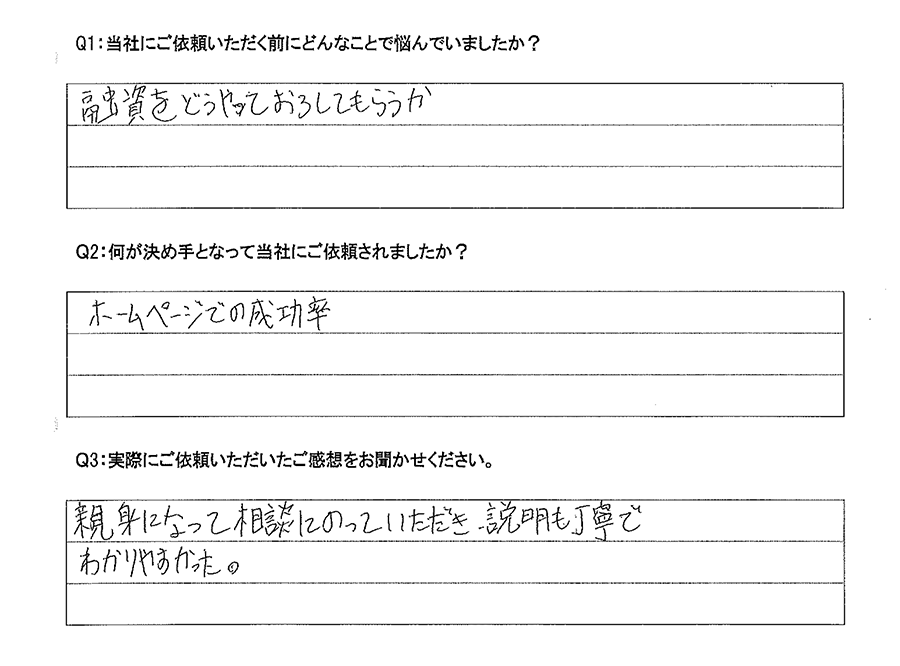 Q1：当社にご依頼いただく前にどんなことで悩んでいましたか？
融資をどうやっておろしてもらうか
Q2：何が決め手となって当社にご依頼されましたか？
ホームページでの成功率
Q3：実際にご依頼いただいたご感想をお聞かせください。
親身になって相談にのっていただき、説明も丁寧で
わかりやすかった。